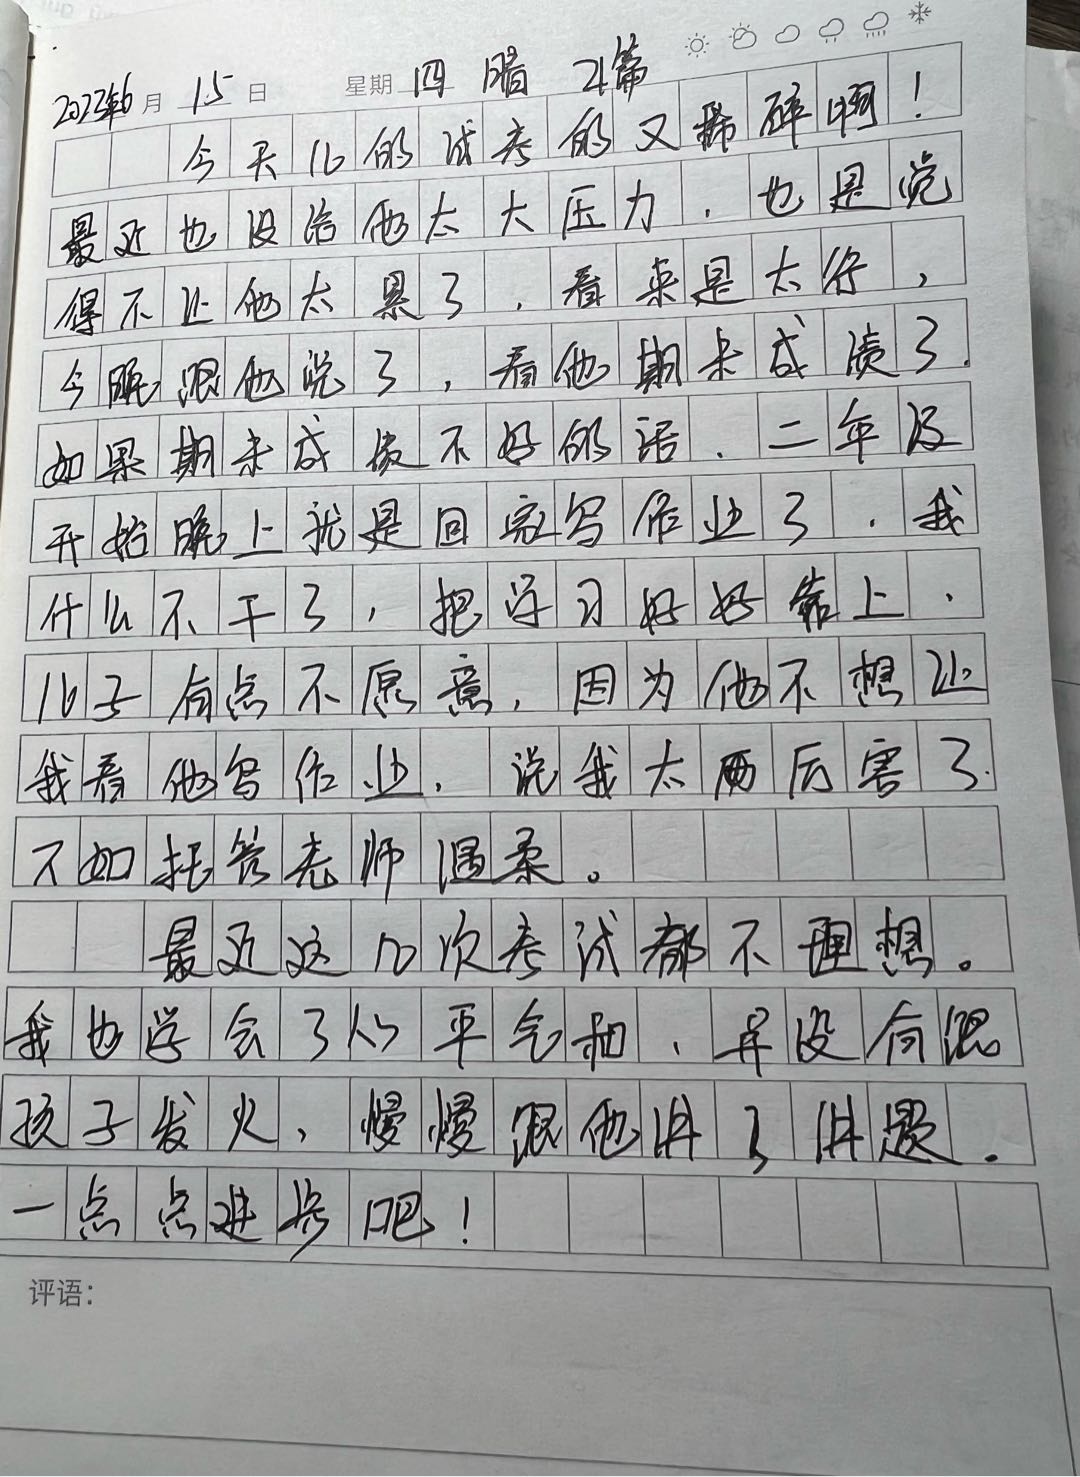 2023年6月15日 星期四 晴 21篇
今天儿的试考的又稀碎啊！
最近也没给他太大压力，也是觉
得不让他太累了，看来是太行，
今晚跟他说了，看他期末成绩了.
如果期末成绩不好的话，二年及
开始晚上就是回家写作业了，我
什么不干了，把学习好好靠上，
儿子有点不愿意，因为他不想让
我看他写作业，说我太厉害了.
不如托管老师温柔。
最近这几次考试都不理想。
我也学会了心平气和，并没有跟
孩子发火，慢慢跟他讲了讲题.
一点点进步吧！
评语：